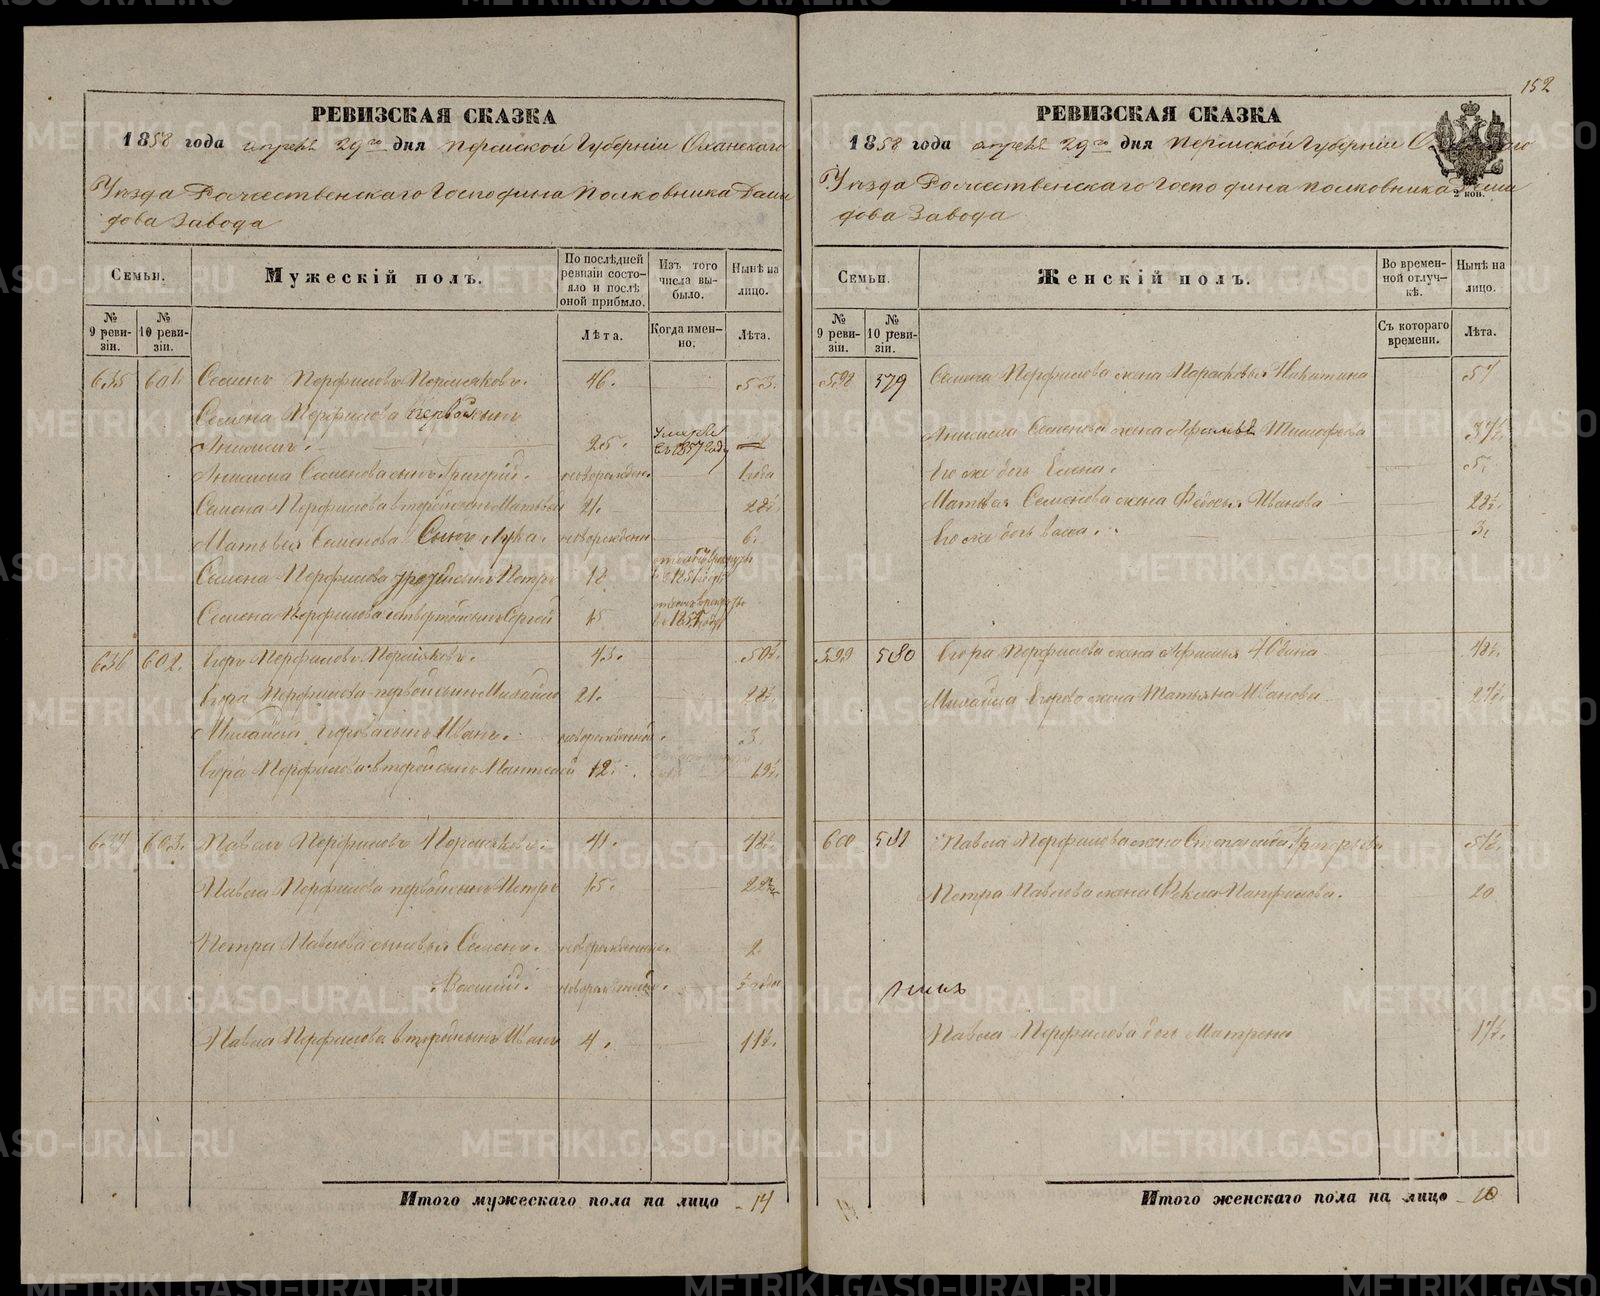 152
РЕВИЗСКАЯ СКАЗКА
1858 года апреля 29го дня Пермской Губернии Оханскаго
Уезда Рождественскаго Господина Полковника Деми
дова Завода
Семьи.
Мужескій полъ.
По послѣдней ревизіи состояло и послѣ оной прибыло.
Изъ того числа выбыло.
Нынѣ на лицо.
№ 9 ревизіи.
№ 10 ревизіи.
Лѣта.
Когда именно.
Лѣта.
635 601 Семенъ Перфиловъ Пермяковъ. 46. 53.
Семена Перфилова первой сынъ
Анисимъ. 25. Умеръ въ 1857 году
Анисима Семенова сынъ Григорий. новорожден. 1 года
Семена Перфилова второй сынъ Матвей 21. 28½.
Матвея Семенова Сынъ Лука. новорожден 6.
Семена Перфилова третий сынъ Петръ 18
Семена Перфилова четвертой сынъ Сергей 15
636 602. Егоръ Перфиловъ Пермяковъ. 43. 50½.
Егора Перфилова первой сынъ Михайло 21. 28½.
Михайла Егорова сынъ Иванъ. новорожденный. 3.
Егора Перфилова второй сынъ Пантелей 12. 19½.
637 603. Павелъ Перфиловъ Пермяковъ. 41. 48½.
Павла Перфилова первой сынъ Петръ 15. 22½
Петра Павлова сыновья Семенъ. новорожденные. 2.
Василий. новорожденный. ½ года
Павла Перфилова второй сынъ Иванъ 4. 11½.
Итого мужескаго пола на лицо 14
РЕВИЗСКАЯ СКАЗКА
1858 года апреля 29го дня Пермской Губернии
Уезда Рождественскаго Господина Полковника Деми
дова Завода
2 коп.
Семьи.
Женскій полъ.
Во временной отлучкѣ.
Нынѣ на лицо.
№ 9 ревизіи.
№ 10 ревизіи.
Съ котораго времени.
Лѣта.
598 579 Семена Перфилова жена Парасковья Никитина 57
Анисима Семенова жена Афимья Тимофеева 37½.
Его же дочь Елена. 5.
Матвея Семенова жена Федосья Иванова 28½.
Его же дочь 3.
599 580 Егора Перфилова жена Афимья 48½.
Михайла Егорова жена Татьяна Иванова 27½.
600 581 Павла Перфилова жена Степанида Григорьева 51½.
Петра Павлова жена Фекла Панфилова. 20
Павла Перфилова дочь Матрена 17½.
Итого женскаго пола на лицо 10
METRIKI.GASO-URAL.RU